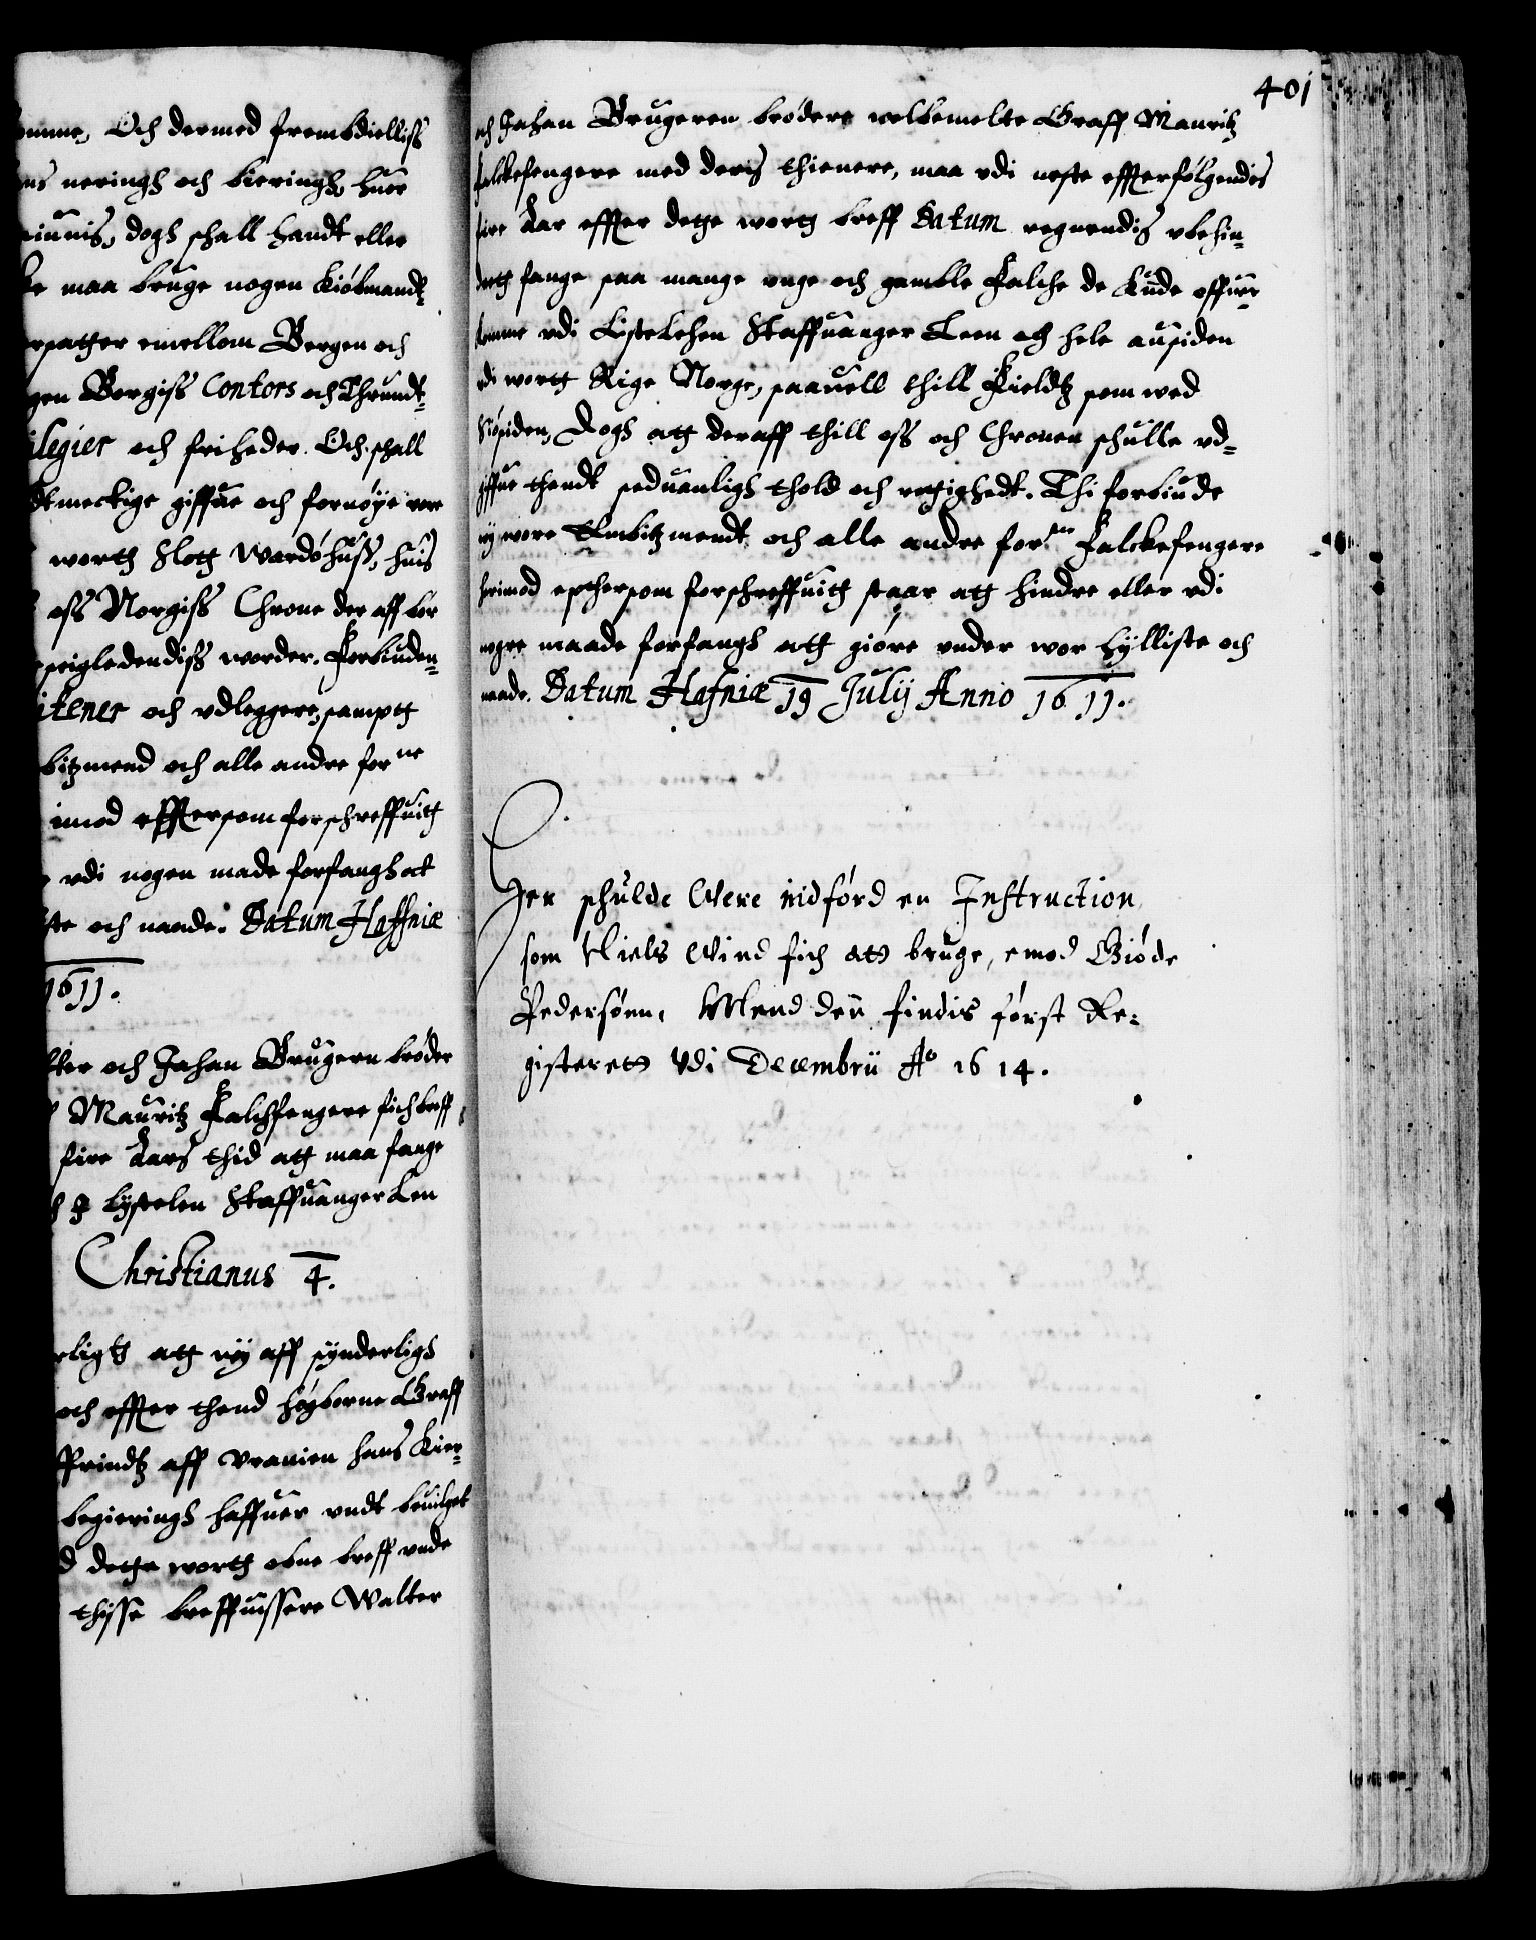 Och dermed frembdielliss
neringh och bieringh, huer
dogh schall handt eller
maa bruge nogen Kiöbmandt-
emellom Bergen och
Bergiss Contors och Thrundt-
och friheder. Och schall
giffue och fornöye vor
worth Slott Wardöhuss, huis
oss Norgiss Chrone der aff bör
worder. Forbiuden-
och vdleggere, sampt
och alle andre forne
imod effttersom forschreffuitt
vdi nogen made forfangh at
och naade. Datum Haffniæ
1611.
och Johan Brugern bröder
Mauritz Falchfengere fich breff
fire Aars thid att maa fange
Lystelen Staffuanger Len
Christianus 4.
att wy aff synderligh
och effter thend höyborne Graff
Printz aff Vranien hans Kier-
begieringh haffuer vndt beuilget
dette wortt obne breff vnde
thysse breffuissere Walter
401
och Johan Brugeren brödere welbemelte Graff Mauritz
falckefengere med deris thienere, maa vdi neste effterfölgendis
fire Aar effter dette wortt breff Datum regnendis vbehin-
drett fange saa mange vnge och gamble Falche de kunde offuer-
komme vdi Listelehen Staffuanger Leen och hele ausiden
vdi wortt Rige Norge, saauell thill Fieldtz som wed
Siösiden, Dogh att deraff thill oss och Chronen schulle vd-
giffue thendt seduanligh thold och rettighedt. Thi forbiude
wy wore Embitzmendt och alle andre forne Falckefengere
herimod epthersom forschreffuitt staar att hindre eller vdi
nogre maade forfangh att giöre vnder wor hylliste och
naade. Datum Hafniæ 19 July Anno 1611.
Her schulde Were indförd en Instruction
som Niels Wind fich att bruge, emod Giöde
Pedersönn, Mend den findis först Re-
gisteret Vdi Decembrii Ao 1614.